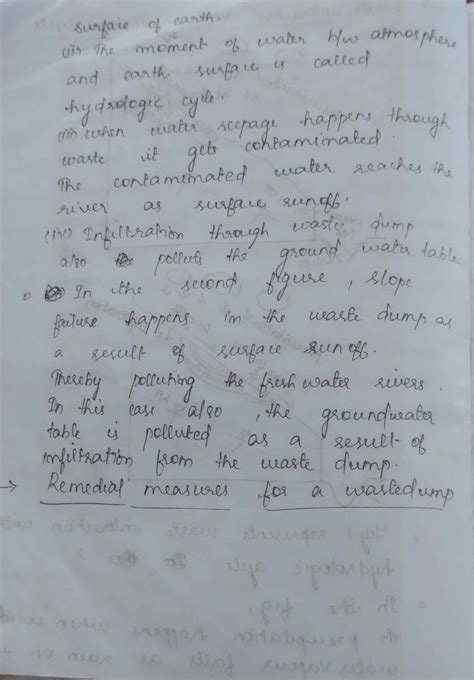 surface of earth.
(ii) The moment of water b/w atmosphere
and earth surface is called
hydrologic cycle.
(iii) when water seepage happens through
waste it gets contaminated.
The contaminated water reaches the
river as surface runoff.
(iv) Infiltration through waste dump
also pollute the ground water table
In the second figure, slope
failure happens in the waste dump as
a result of surface runoff.
Thereby polluting the fresh water rivers.
In this case also, the groundwater
table is polluted as a result of
infiltration from the waste dump.
→ Remedial measures for a wastedump
fig 1 represents waste interaction with
hydrologic cycle
In the fig,
precipitation happens when
water vapour falls as rain on